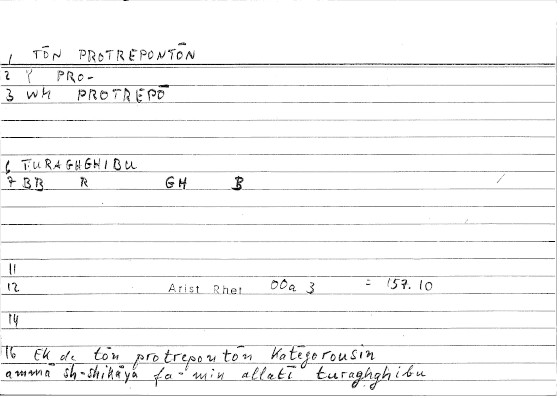 1 TŌN PROTREPONTŌN
2 P PRO-
3 WM PROTREPŌ
6 TURAGHGHIBU
7 BB R GH B
11
12 Arist Rhet 00a 3 = 157.10
14
16 Ek de tōn protrepontōn katēgorousin
ammā sh-shikāya fa-min allatī turaghghibu